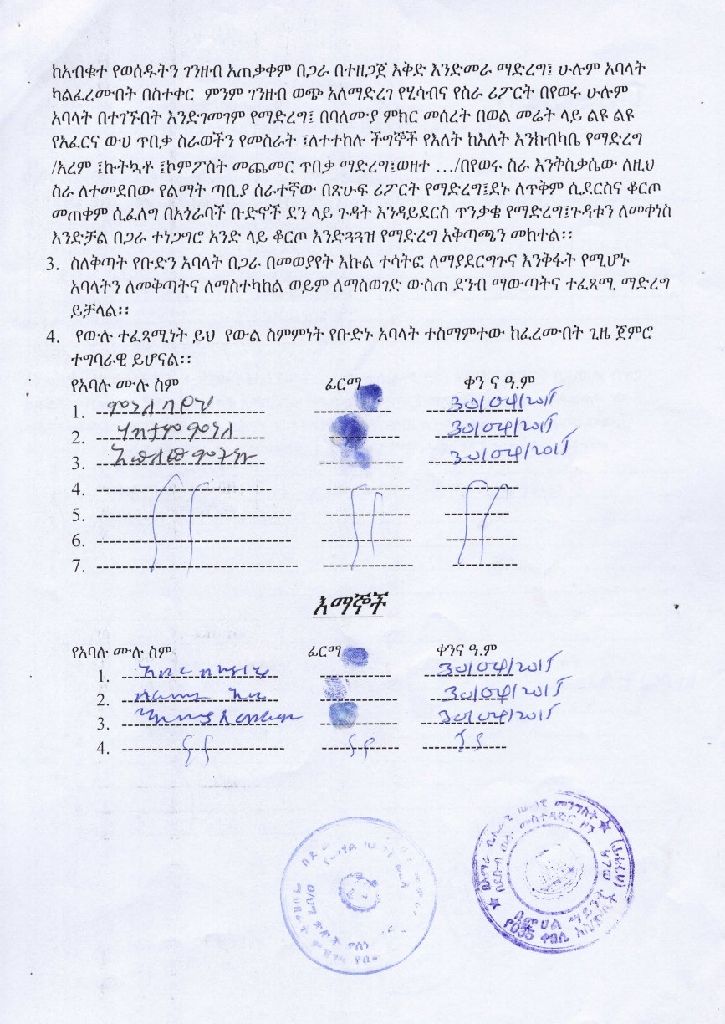 ከአብቁተ የወሰዱትን ገንዘብ አጠቃቀም በጋራ በተዘጋጀ እቅድ እንድመራ ማድረግ፤ ሁሉም አባላት
ካልፈረሙበት በስተቀር ምንም ገንዘብ ወጭ አለማድረግ የሂሳብና የስራ ሪፖርት በየወሩ ሁሉም
አባላት በተገኙበት እንድገመገም የማድረግ፤ በባለሙያ ምክር መሰረት በወል መሬት ላይ ልዩ ልዩ
የአፈርና ውሀ ጥበቃ ስራወችን የመስራት ፤ለተተከሉ ችግኞች የእለት ከእለት እንክብካቤ የማድረግ
/አረም ፤ኩትኳቶ ፤ኮምፖስት መጨመር ጥበቃ ማድረግ፤ወዘተ …/በየወሩ ስራ እንቅስቃሴው ለዚህ
ስራ ለተመደበው የልማት ጣቢያ ሰራተኛው በጽሁፍ ሪፖርት የማድረግ፤ደኑ ለጥቅም ሲደርስና ቆርጦ
መጠቀም ሲፈለግ በአጎራባች ቡድኖች ደን ላይ ጉዳት እንዳይደርስ ጥንቃቄ የማድረግ፤ጉዳቱን ለመቀነስ
እንድቻል በጋራ ተነጋግሮ አንድ ላይ ቆርጦ እንድጓጓዝ የማድረግ አቅጣጫን መከተል፡፡
3. ስለቅጣት የቡድን አባላት በጋራ በመወያየት እኩል ተሳትፎ ለማያደርግጉና እንቅፋት የሚሆኑ
አባላትን ለመቅጣትና ለማስተካከል ወይም ለማስወገድ ውስጠ ደንብ ማውጣትና ተፈጻሚ ማድረግ
ይቻላል፡፡
4. የውሉ ተፈጻሚነት ይህ የውል ስምምነት የቡድኑ አባላት ተስማምተው ከፈረሙበት ጊዜ ጀምሮ
ተግባራዊ ይሆናል፡፡
የአባሉ ሙሉ ስም ፊርማ ቀን ና ዓ.ም
1. 30/04/2011
2. 30/04/2011
3. 30/04/2011
4.
5.
6.
7.
እማኞች
የአባሉ ሙሉ ስም ፊርማ ቀንና ዓ.ም
1. 30/04/2011
2. 30/04/2011
3. 30/04/2011
4.